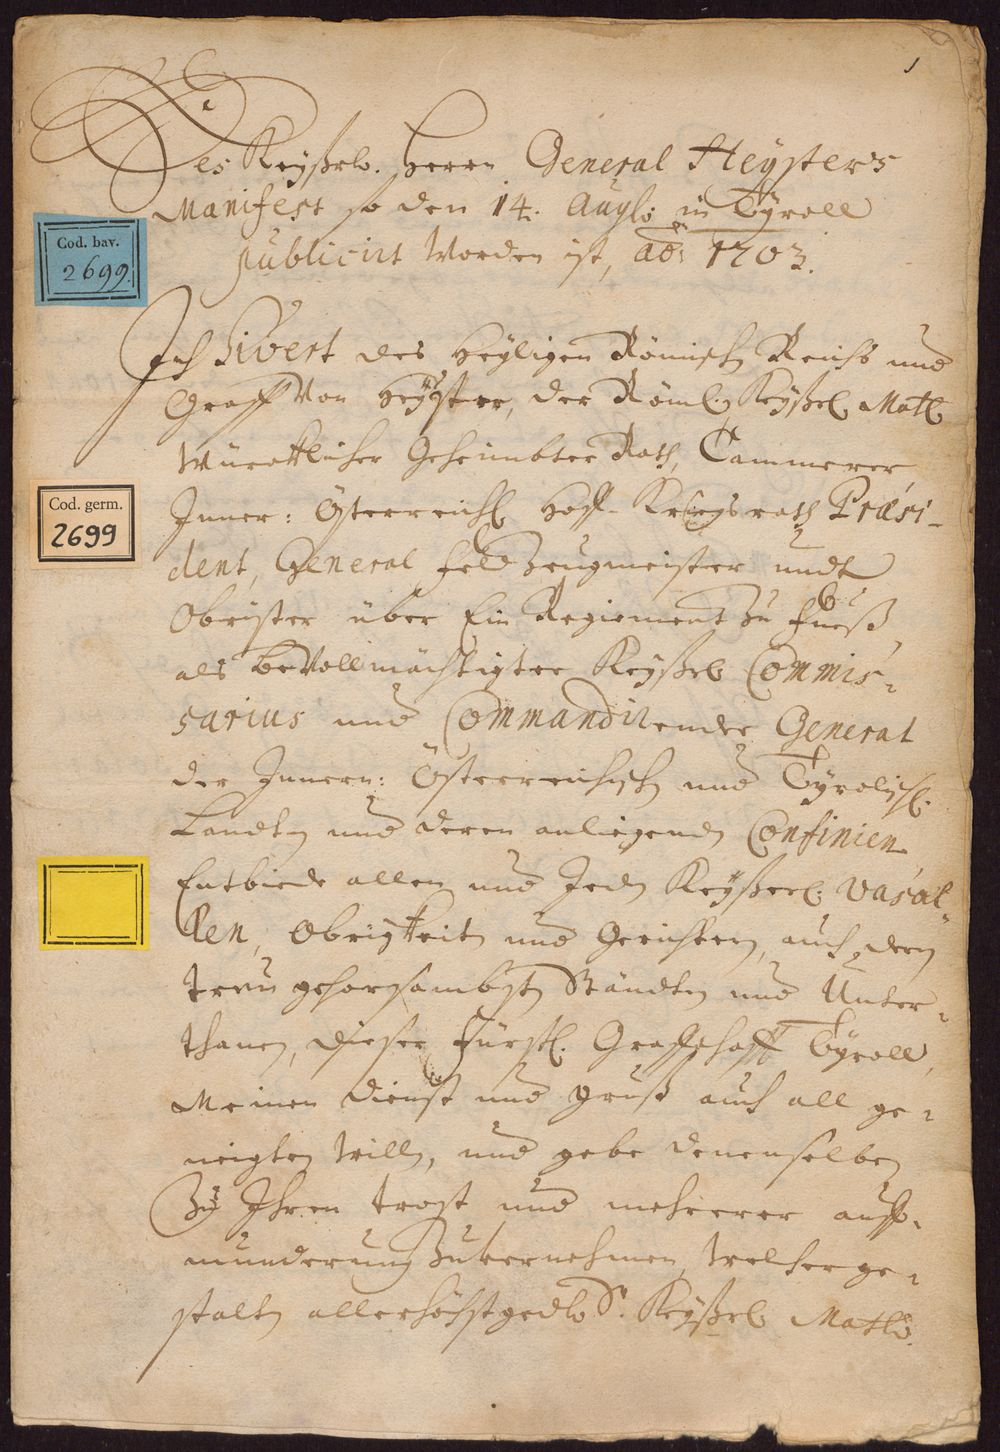 1
Des Keyßerl. Herrn General Heÿsters
Manifest so den 14. Augs: in Tÿroll
publicirt worden ist, aõ: 1703.
Cod. bav.
2699.
Ich Sivert des Heÿligen Römisch Reichs und
Graff von Heÿster, der Röml. Keÿßerl. Matt.
Würcklicher Geheimbter Rath, Cammerer
Inner: Österreichl Hoff-Kriegsrath Præsi-
Cod. germ.
2699
dent, General Feldzeugmeister undt
Obrister über Ein Regiement zu Fueß,
als bevollmächtigter Keyßerl Commis-
sarius und Commandirender General
der Innern: Österreichisch und Tÿrolisch.
Landten und deren anliegenden Confinien
Entbiede allen und Jeden Keÿßerl. Vasal-
len, Obrigkeiten und Gerichtern, auch dern
treu gehorsambsten Ständten und Unter-
thanen, dieser Fürstl. Graffschafft Tÿroll,
Meinen dienst und gruß auch all ge-
neigten willen, und gebe denenselben
Zu Ihren trost und mehrerer auff-
munderung zuvernehmen, welcher ge-
stalten allerhöchstgedl Sr. Keÿßerl Matt.